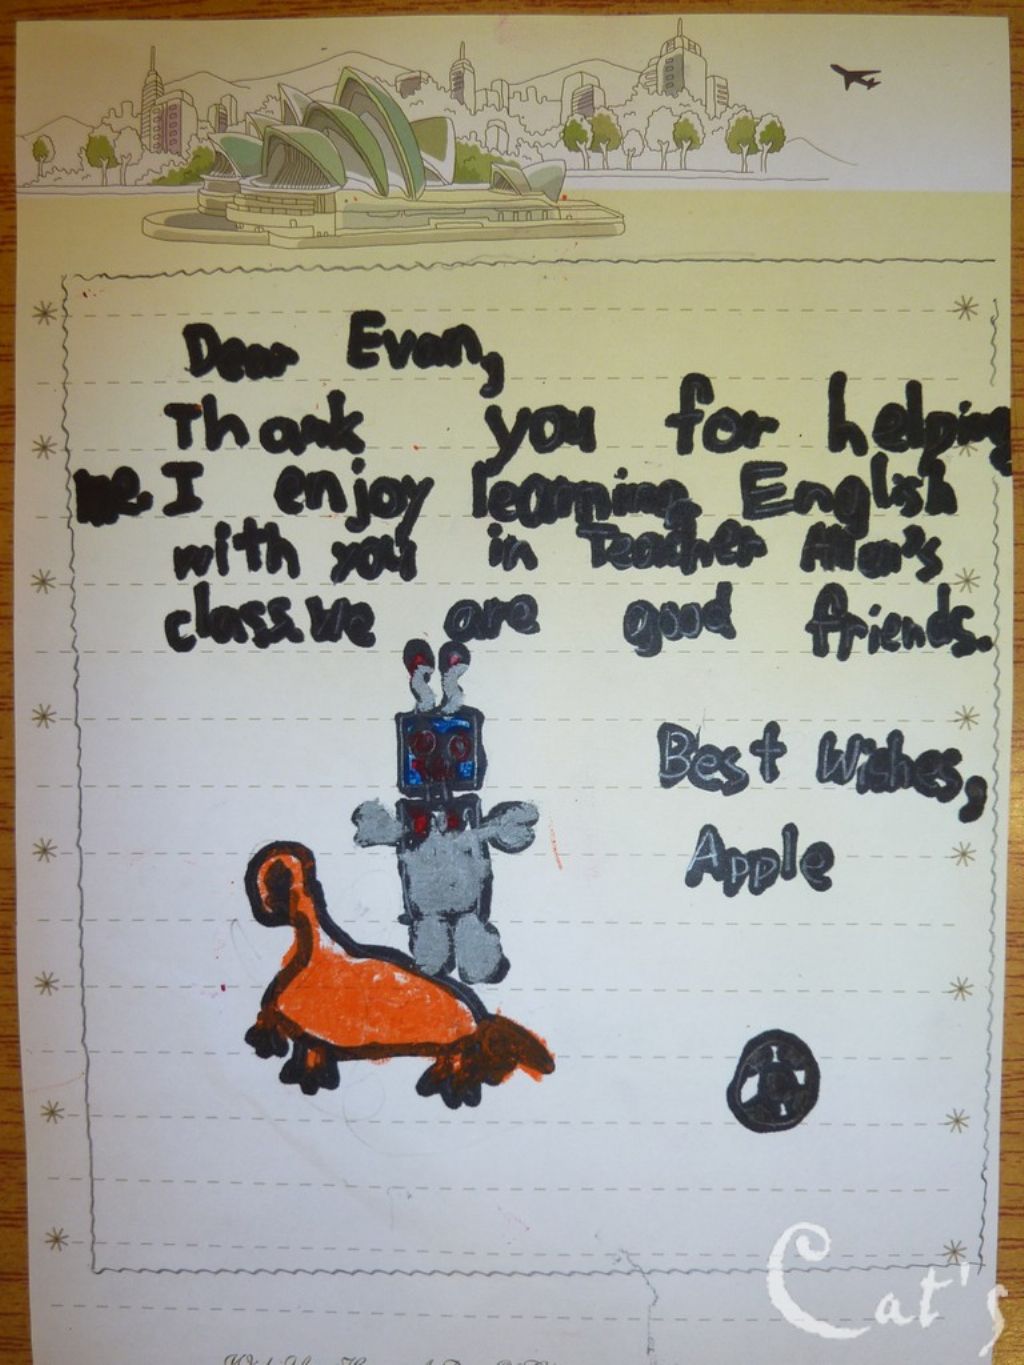 Dear Evan,
Thank you for helping
me. I enjoy learning English
with you in Teacher Allan's
class. We are good friends.
Best Wiches,
Apple
Cat's